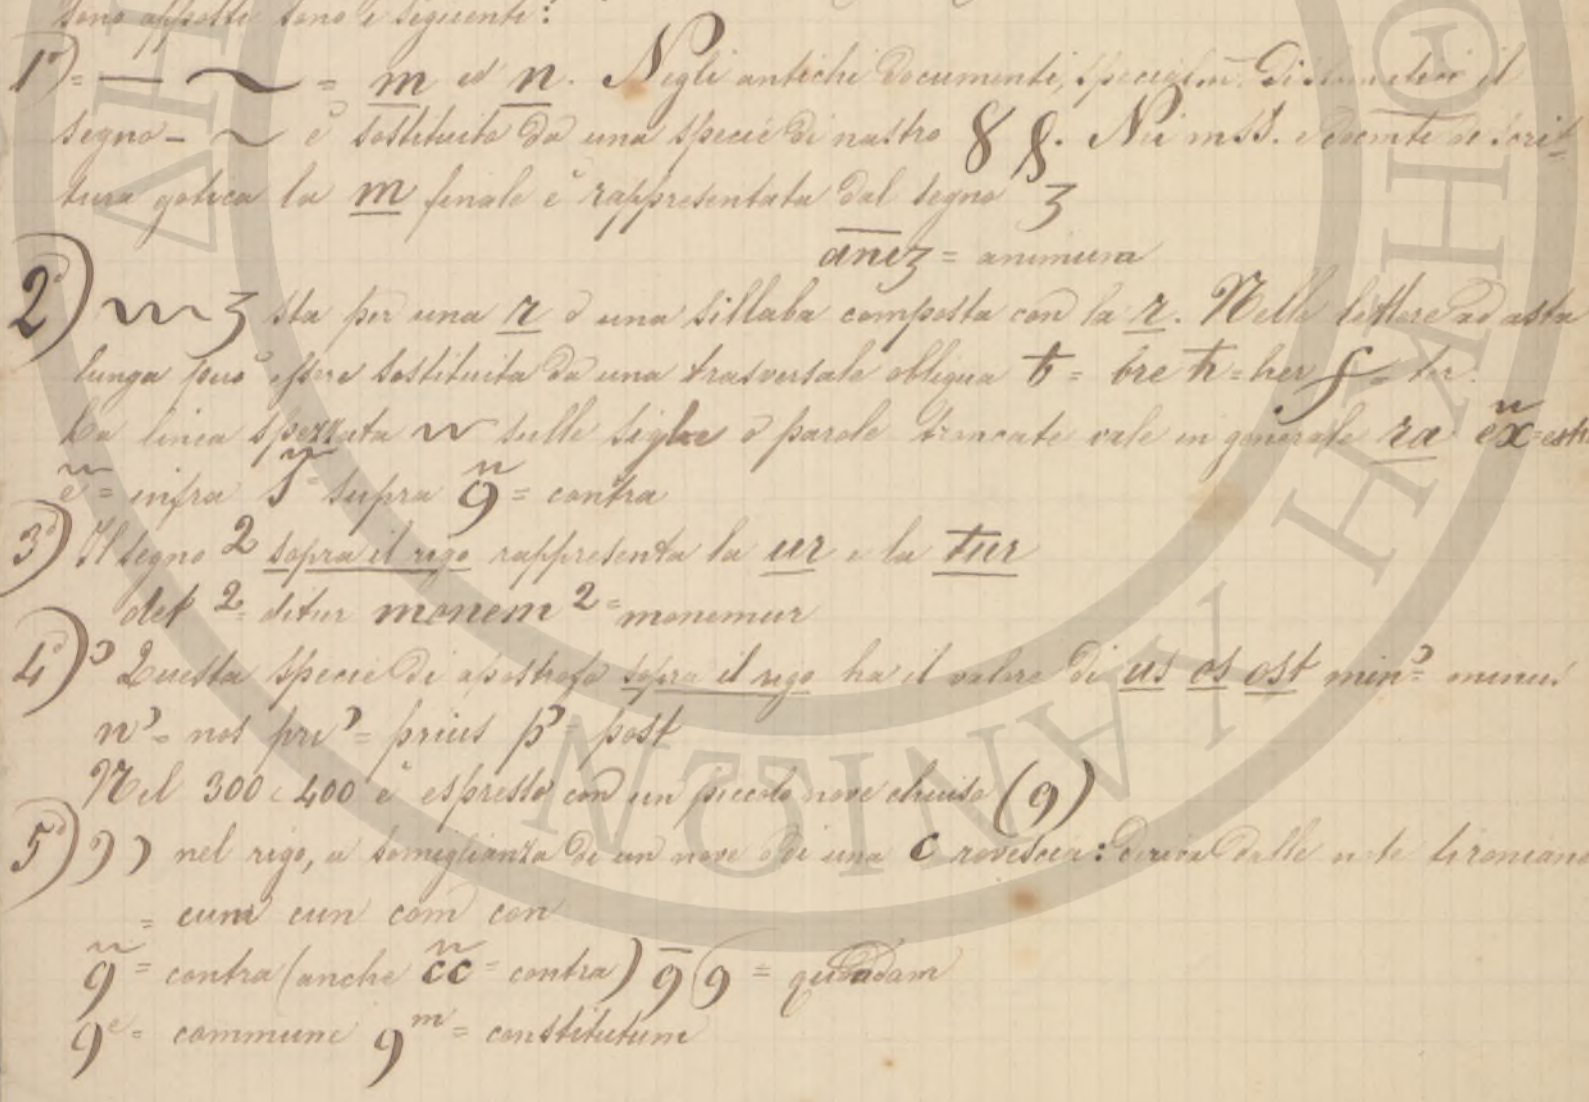 sono apposti sono i seguenti:
1°) = — ~ = m ed n. Negli antichi documenti, specialm. il
segno - ~ è sostituito da una specie di nastro 8 8. Nei mss. di scrit-
tura gotica la m finale è rappresentata dal segno 3
anez = animum
2°) ~ 3 sta per una r o una sillaba composta con la r. Nelle lettere ad asta
lunga può essere sostituita da una trasversale obliqua ƀ = bre ħ = her ʃ = ter.
La linea spezzata ~ sulle sigle o parole troncate vale in generale ra ex̃ = extra
ẽ = infra s̃ = supra 9̃ = contra
3°) Il segno 2 sopra il rigo rappresenta la ur e la tur
det ² = ditur monem ² = monemur
4°) ʾ Questa specie di apostrofo sopra il rigo ha il valore di us os ost minʾ = minus
nʾ = nos priʾ = prius pʾ = post
Nel 300 e 400 è espresso con un piccolo nove chiuso (9)
5°) 9 ) nel rigo, a somiglianza di un nove o di una c rovescia: deriva dalle note tironiane
= cum cun com con
9̃ = contra (anche c̃c = contra) 9̄ 9 = quddam
9ᵉ = commune 9ᵐ = constitutum
ΑΝΙΩΝ